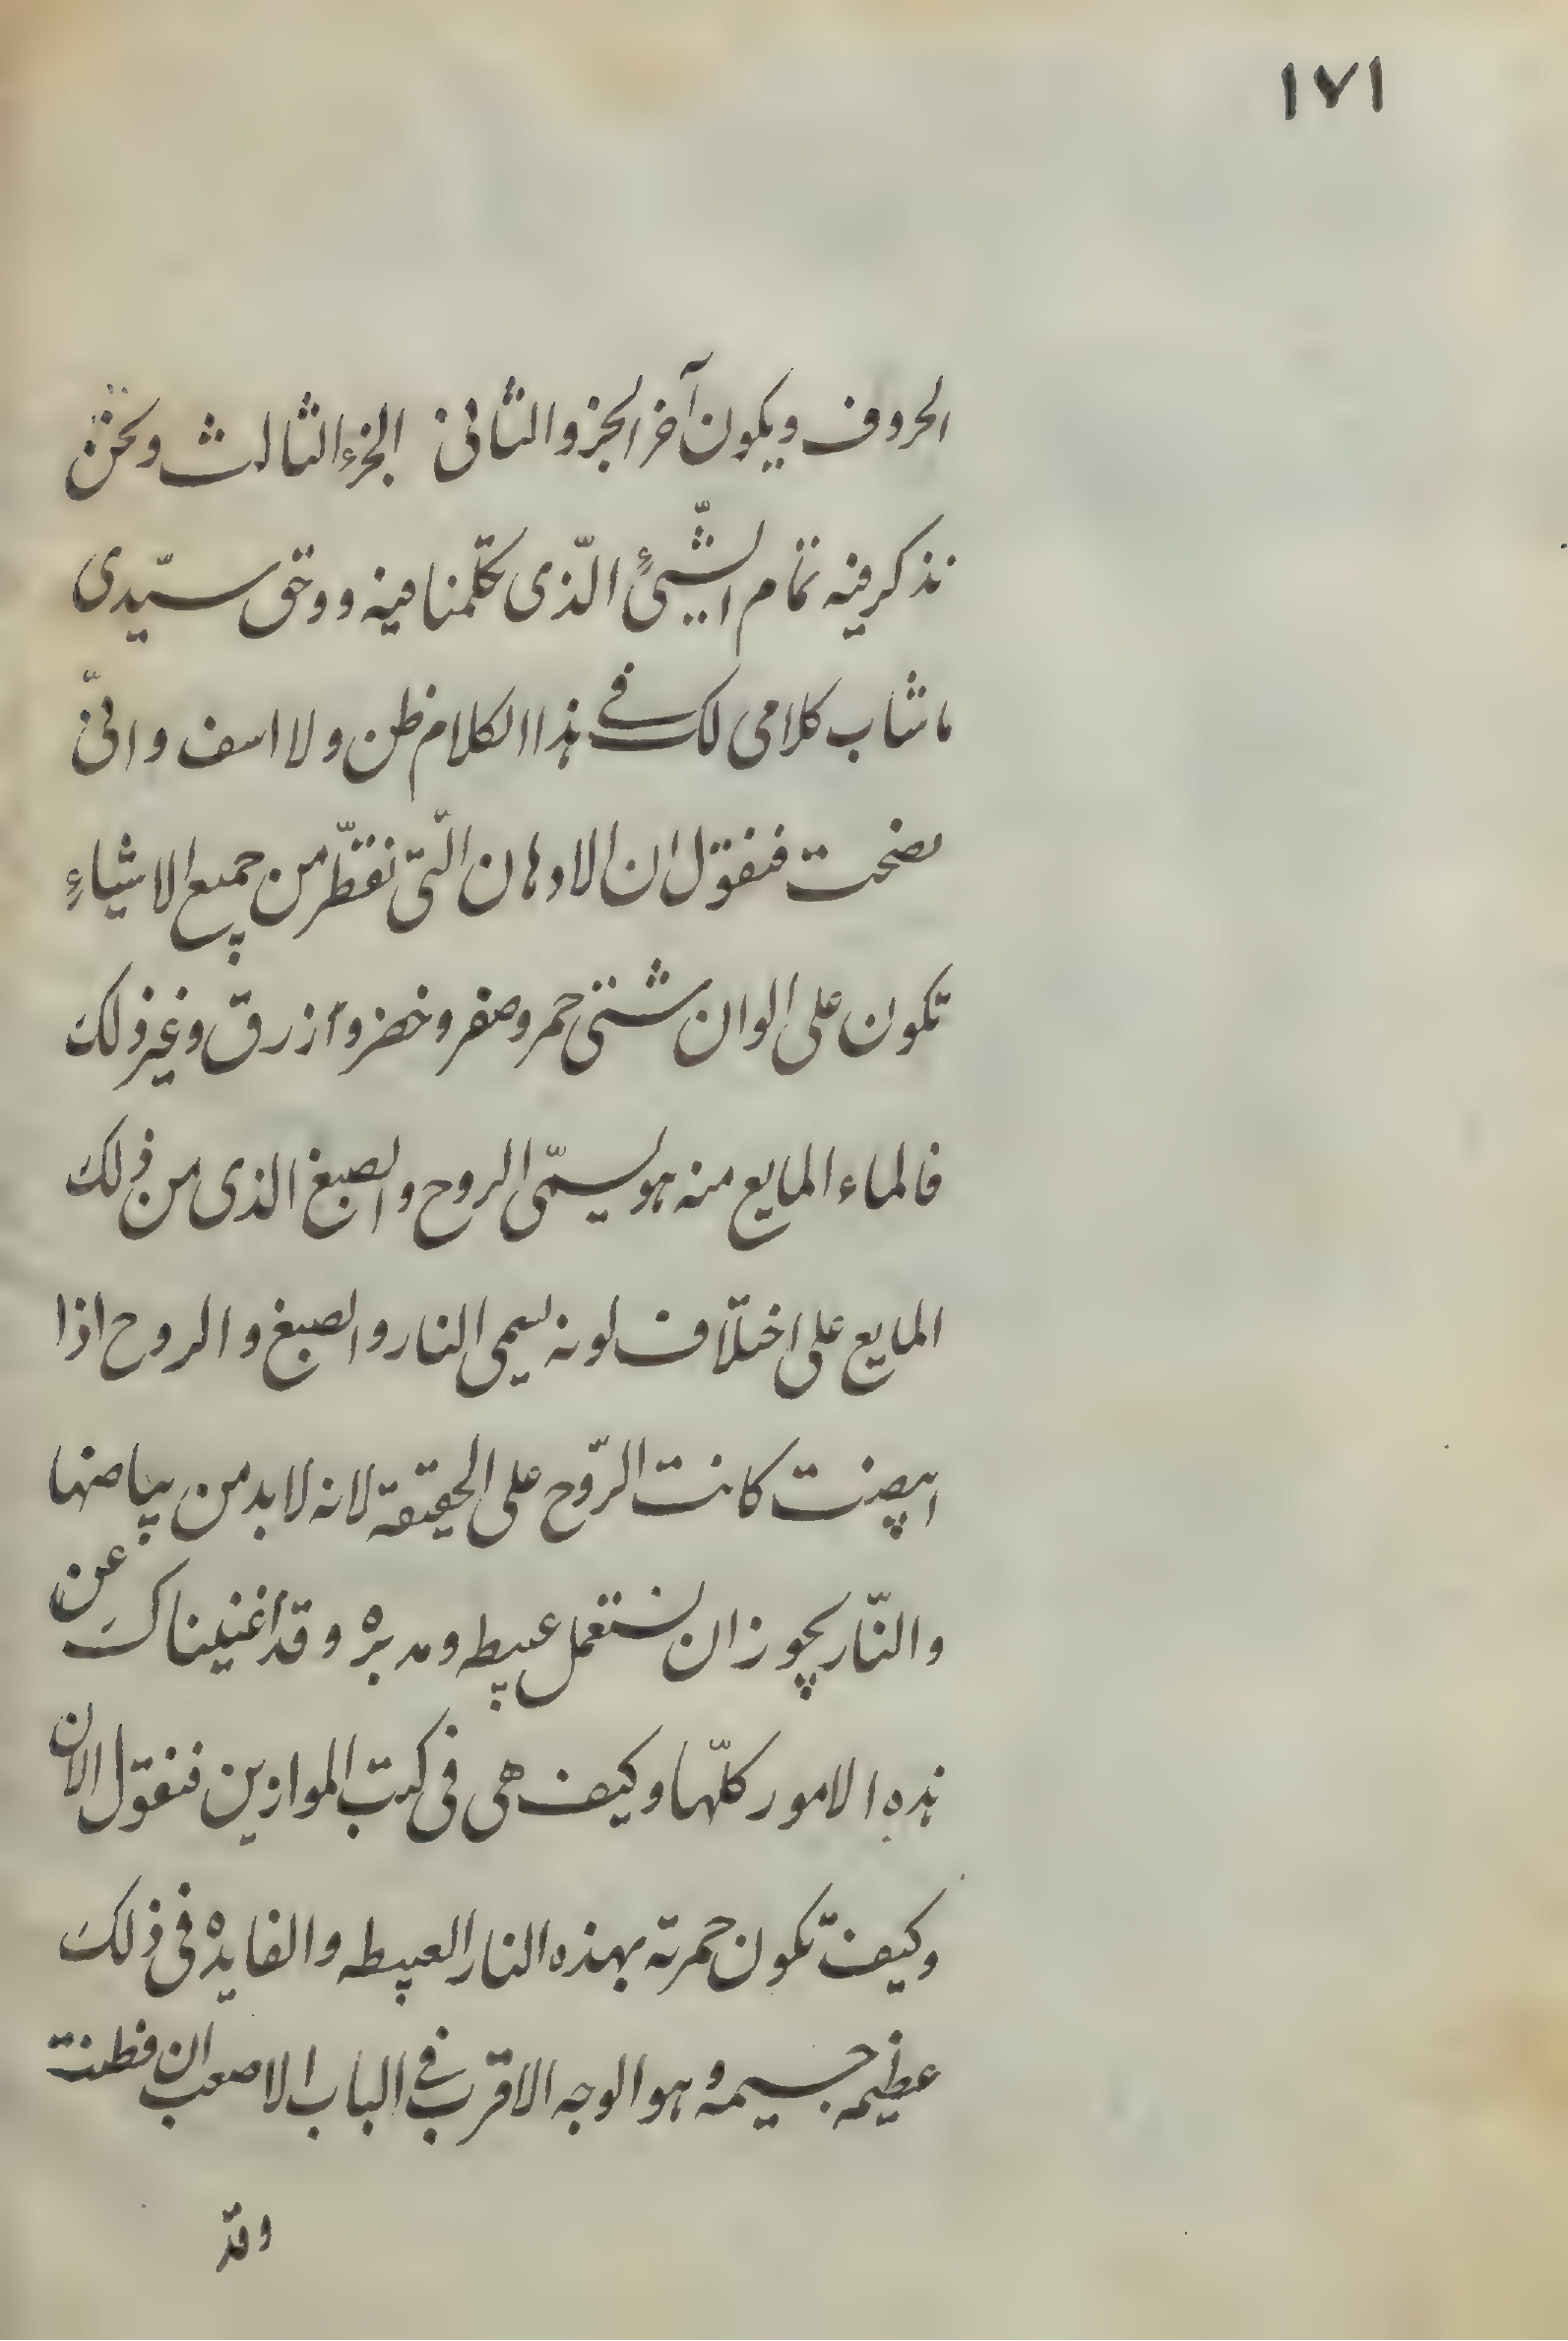 ١٧١
الحروف ويكون آخر الجزو الثانى الجزء الثالث ونحن
نذكر فيه تمام الشّيئ الّذى تكلّمنا فيه ووحق سيّدى
ماشاب كلامى لك فى هذا الكلام ظن ولا اسف وانّى
نصحت فنقول ان الادهان الّتى تقطّر من جميع الاشياء
تكون على الوان شتى حمر وصفر وخضر وأزرق وغير ذلك
فالماء المايع منه هو يسمّى الروح والصبغ الذى من ذلك
المايع على اختلاف لونه يسمى النار والصبغ والروح اذا
ابيضت كانت الرّوح على الحقيقة لانه لابد من بياضها
والنّار يجوز ان تستعمل عبيطه ومدبره وقد أغنيناك عن
هذه الامور كلّها وكيف هى فى كتب الموازين فنقول الان
وكيف تكون حمرته بهذه النار العبيطه والفايده فى ذلك
عظيمه جسيمه وهو الوجه الاقرب فى الباب الاصعب ان فطنت
وقد